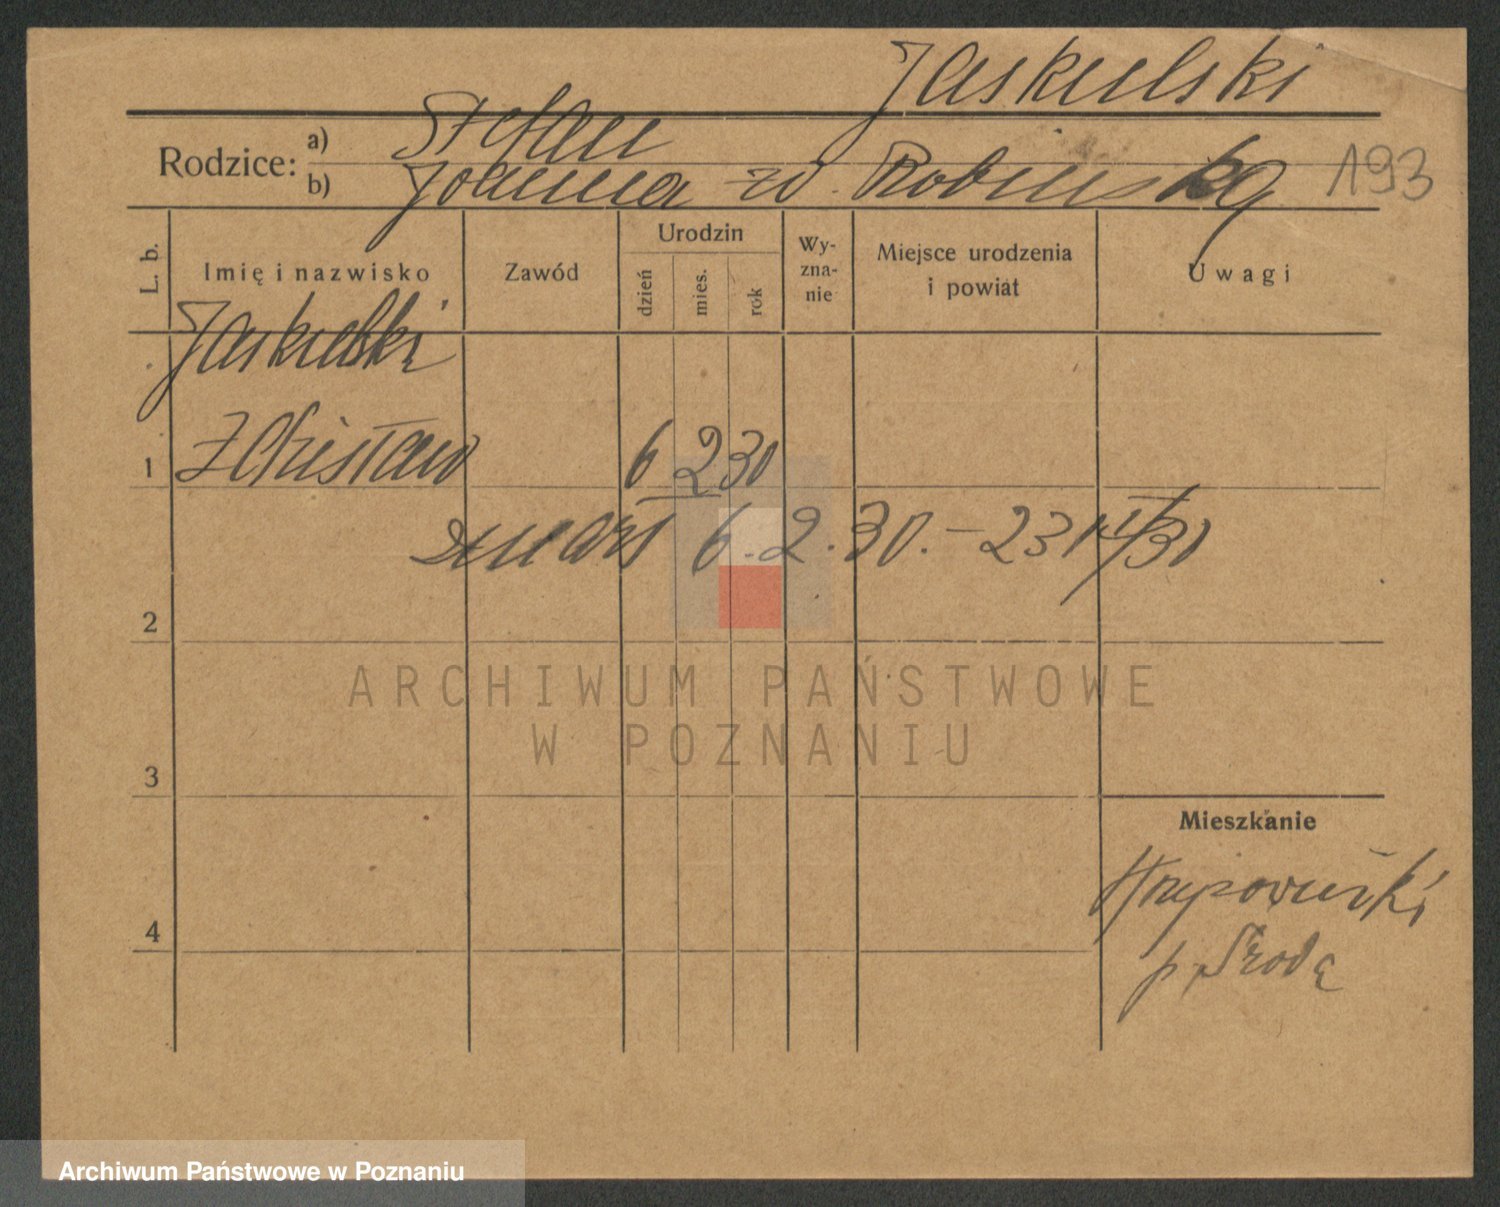 Jaskulski
Rodzice: a) Stefan
b) Joanna z d. Robińska 193
L. b. Imię i nazwisko Zawód Urodzin dzień mies. rok Wyznanie Miejsce urodzenia i powiat Uwagi
Jaskulski
1 Zdzisław 6 2 30
zmarł 6.2.30. –
2
ARCHIWUM PAŃSTWOWE
W POZNANIU
3
Mieszkanie
4
p. Środa
Archiwum Państwowe w Poznaniu